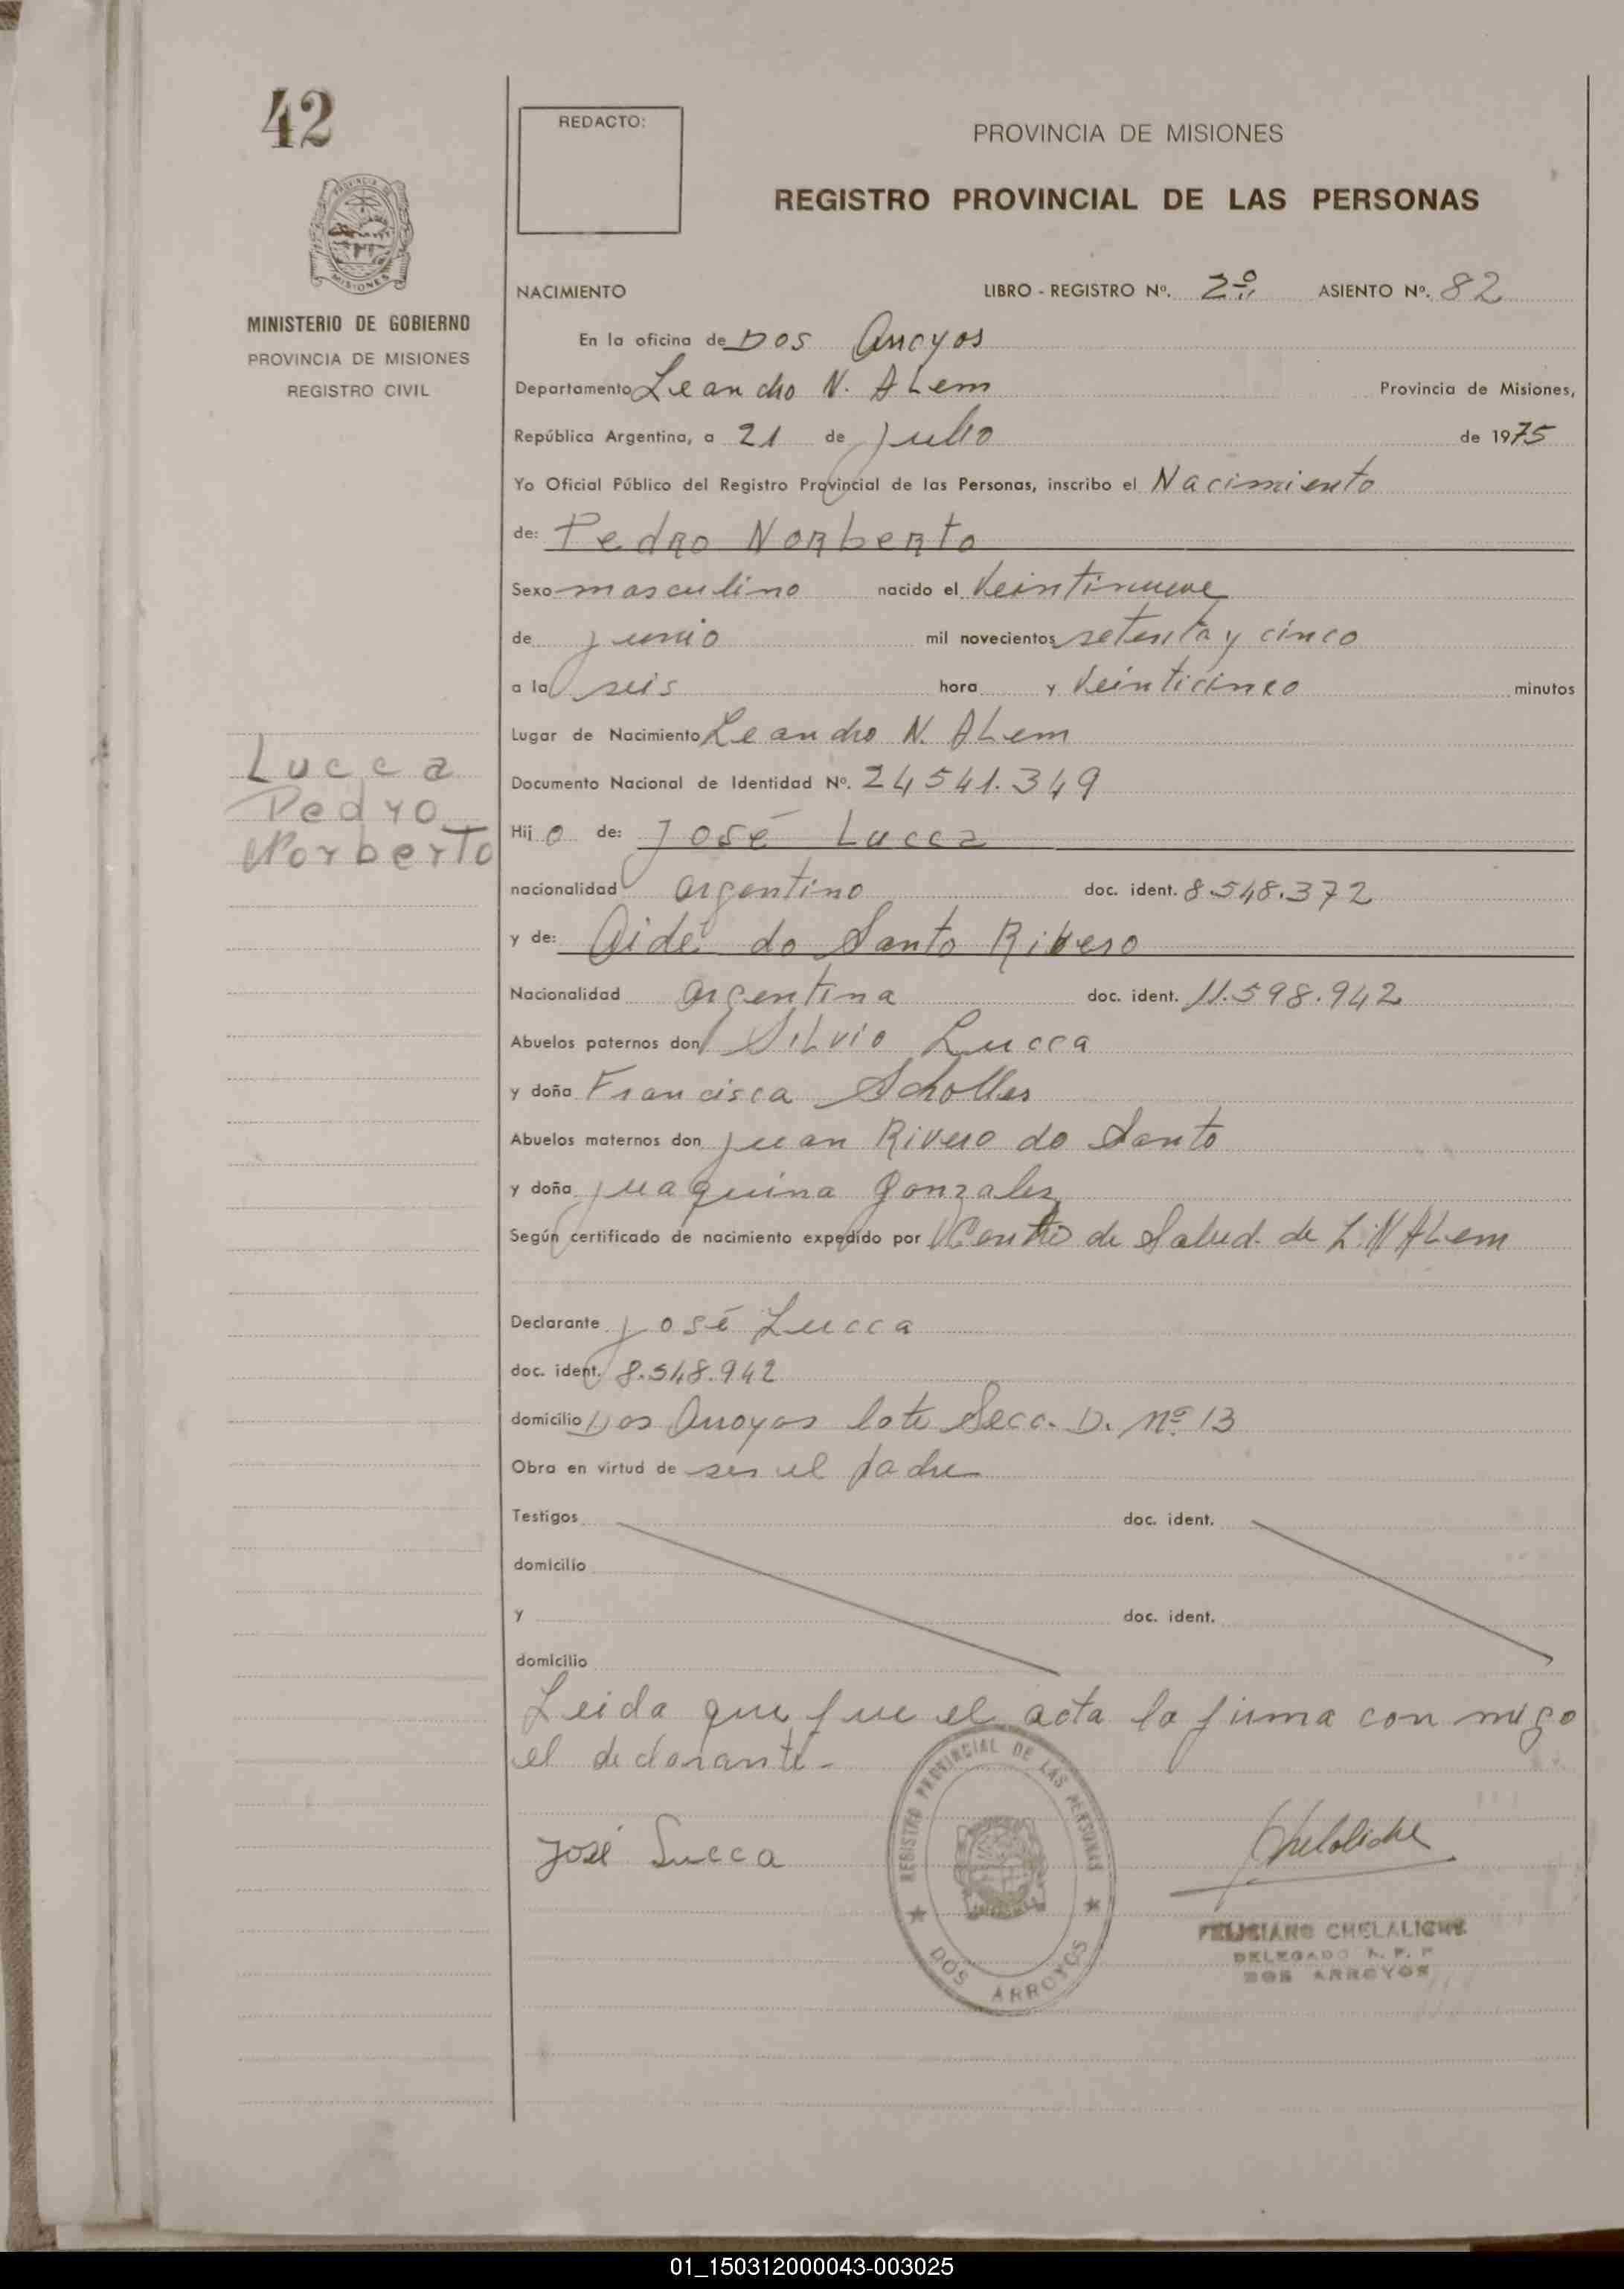 42
REDACTO:
PROVINCIA DE MISIONES
REGISTRO PROVINCIAL DE LAS PERSONAS
PROVINCIA DE
MISIONES
MINISTERIO DE GOBIERNO
PROVINCIA DE MISIONES
REGISTRO CIVIL
NACIMIENTO LIBRO - REGISTRO Nº. 2º ASIENTO Nº. 82
En la oficina de Dos Arroyos
Departamento Leandro N. ALem Provincia de Misiones,
República Argentina, a 21 de julio de 1975
Yo Oficial Público del Registro Provincial de las Personas, inscribo el Nacimiento
de: Pedro Norberto
Sexo masculino nacido el Veintinueve
de junio mil novecientos setenta y cinco
a la seis hora y Veinticinco minutos
Lugar de Nacimiento Leandro N. ALem
Lucca
Pedro
Norberto
Documento Nacional de Identidad Nº. 24541.349
Hij o de: José Lucca
nacionalidad argentino doc. ident. 8.548.372
y de: Aidé do Santo Rivero
Nacionalidad argentina doc. ident. 11.598.942
Abuelos paternos don SiLvio Lucca
y doña Francisca Scholler
Abuelos maternos don juan Rivero do Santo
y doña juaquina gonzalez
Según certificado de nacimiento expedido por Centro de Salud. de L.N ALem
Declarante josé Lucca
doc. ident. 8.548.942
domicilio Dos Arroyos lote Secc. D. Nº 13
Obra en virtud de ser el padre
Testigos doc. ident.
domicilio
y doc. ident.
domicilio
Leida que fue el acta la firma con migo
el declarante-
José Lucca
REGISTRO PROVINCIAL DE LAS PERSONAS
DOS ARROYOS
Chelaliche
FELICIANO CHELALICHE
DELEGADO R. P. P
DOS ARROYOS
01_150312000043-003025